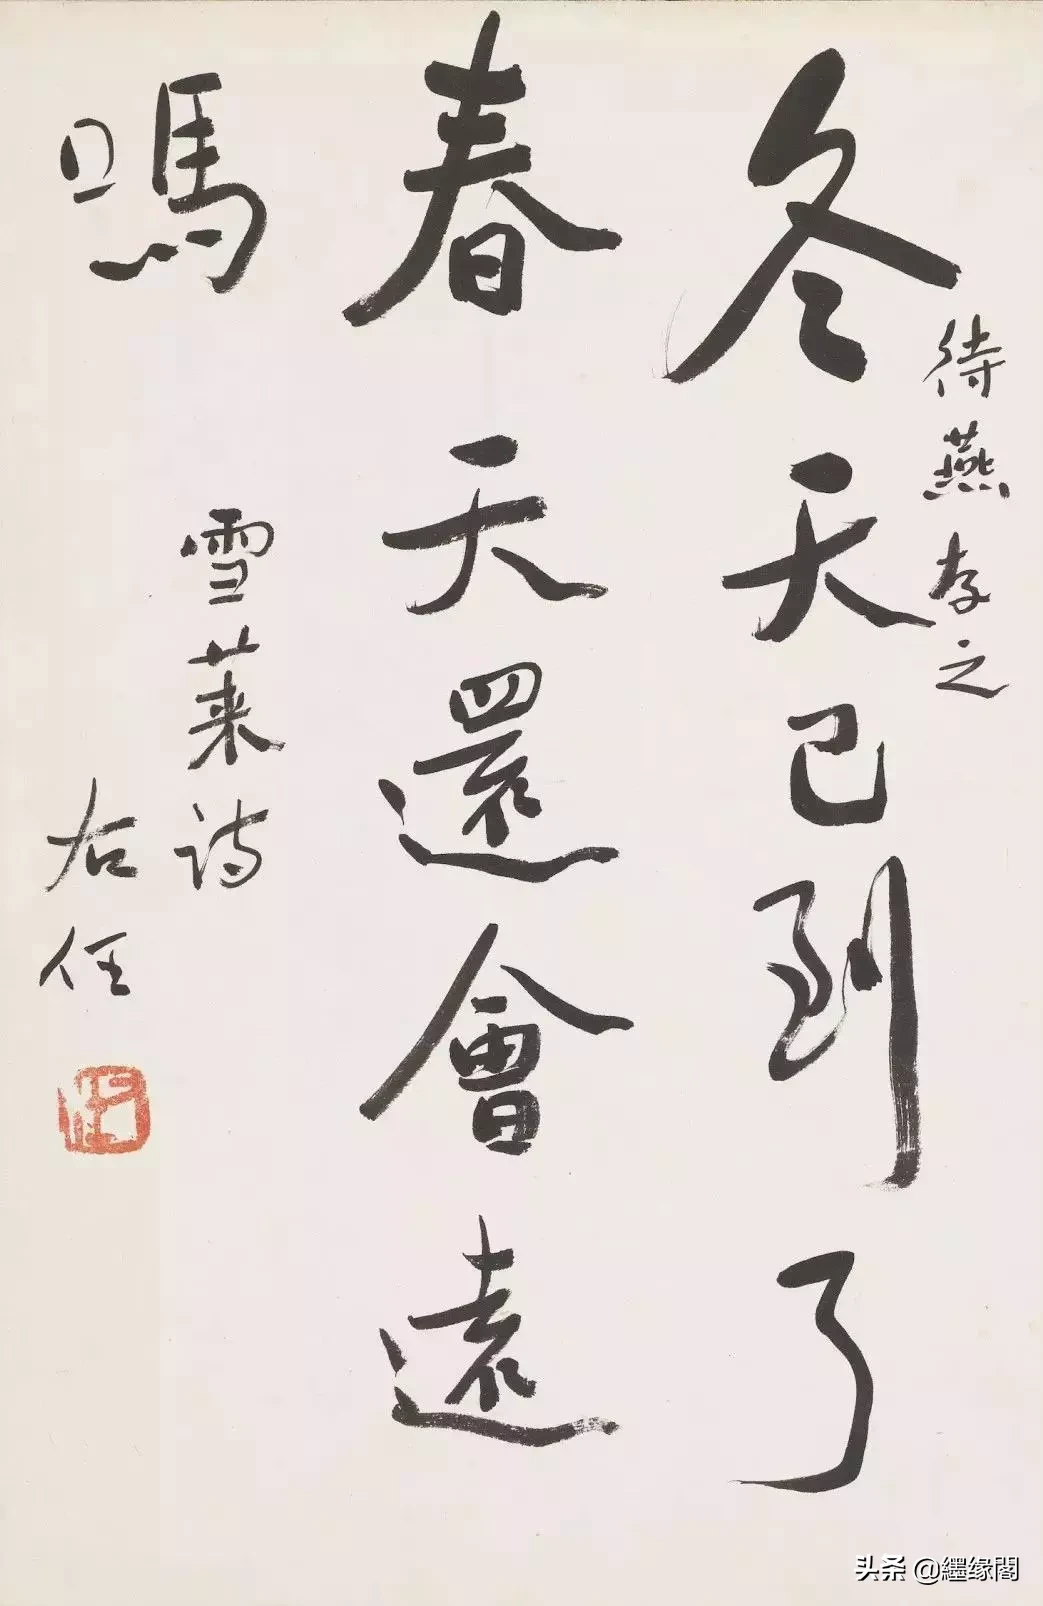 待燕存之
冬天已到了
春天還會遠
嗎
雪莱詩
右任
右任
头条 @缘閣